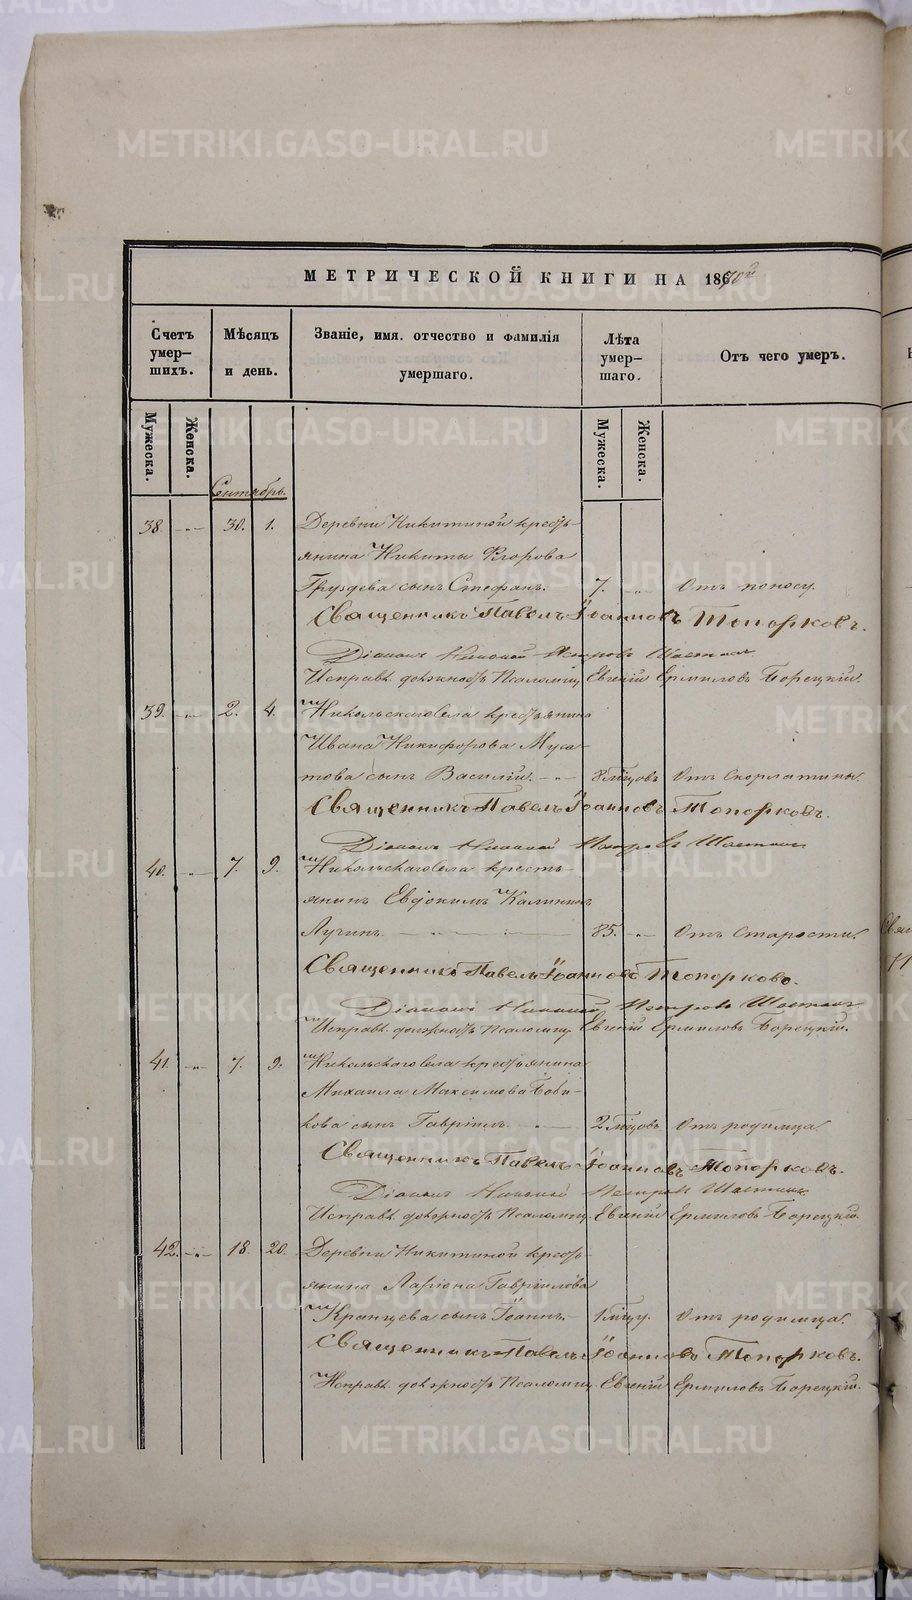 МЕТРИЧЕСКОЙ КНИГИ НА 1870й
Счетъ умер-шихъ.
Мѣсяцъ и день.
Званіе, имя. отчество и фамилія умершаго.
Лѣта умер-шаго.
Отъ чего умеръ.
Мужеска.
Женска.
Мужеска.
Женска.
Сентябрь.
38. -"- 30. 1. Деревни Никитиной кресть-
янина Никиты Егорова
Груздева сынъ Стефанъ. 7. -"- Отъ поносу.
Священникъ Павелъ Іоанновъ Топорковъ.
Діаконъ Николай Петровъ
Исправл. должность Псаломщ. Евгеній Ермиловъ Борецкій.
39. -"- 2. 4. Никольскаго села крестьянина
Ивана Никифорова Муса-
това сынъ Василій. -"- 8 мѣсцовъ Отъ Скорлатины.
Священникъ Павелъ Іоанновъ Топорковъ.
Діаконъ Николай Петровъ
40. -"- 7. 9. Никольскаго села кресть-
янинъ Евдокимъ Калининъ
Лугинъ. 85. -"- Отъ старости.
Священникъ Павелъ Іоанновъ Топорковъ.
Діаконъ Николай Петровъ
Исправл. должность Псаломщ. Евгеній Ермиловъ Борецкій.
41. -"- 7. 9. Никольскаго села крестьянина
Михаила Максимова Боби-
кова сынъ Гавріилъ. 2 мѣсцовъ Отъ родимца.
Священникъ Павелъ Іоанновъ Топорковъ.
Діаконъ Николай Петровъ
Исправл. должность Псаломщ. Евгеній Ермиловъ Борецкій.
42. -"- 18. 20. Деревни Никитиной кресть-
янина Ларіона Гавріилова
сынъ Іоаннъ. 1 мѣсцу. Отъ родимца.
Священникъ Павелъ Іоанновъ Топорковъ.
Исправл. должность Псаломщ. Евгеній Ермиловъ Борецкій.
METRIKI.GASO-URAL.RU